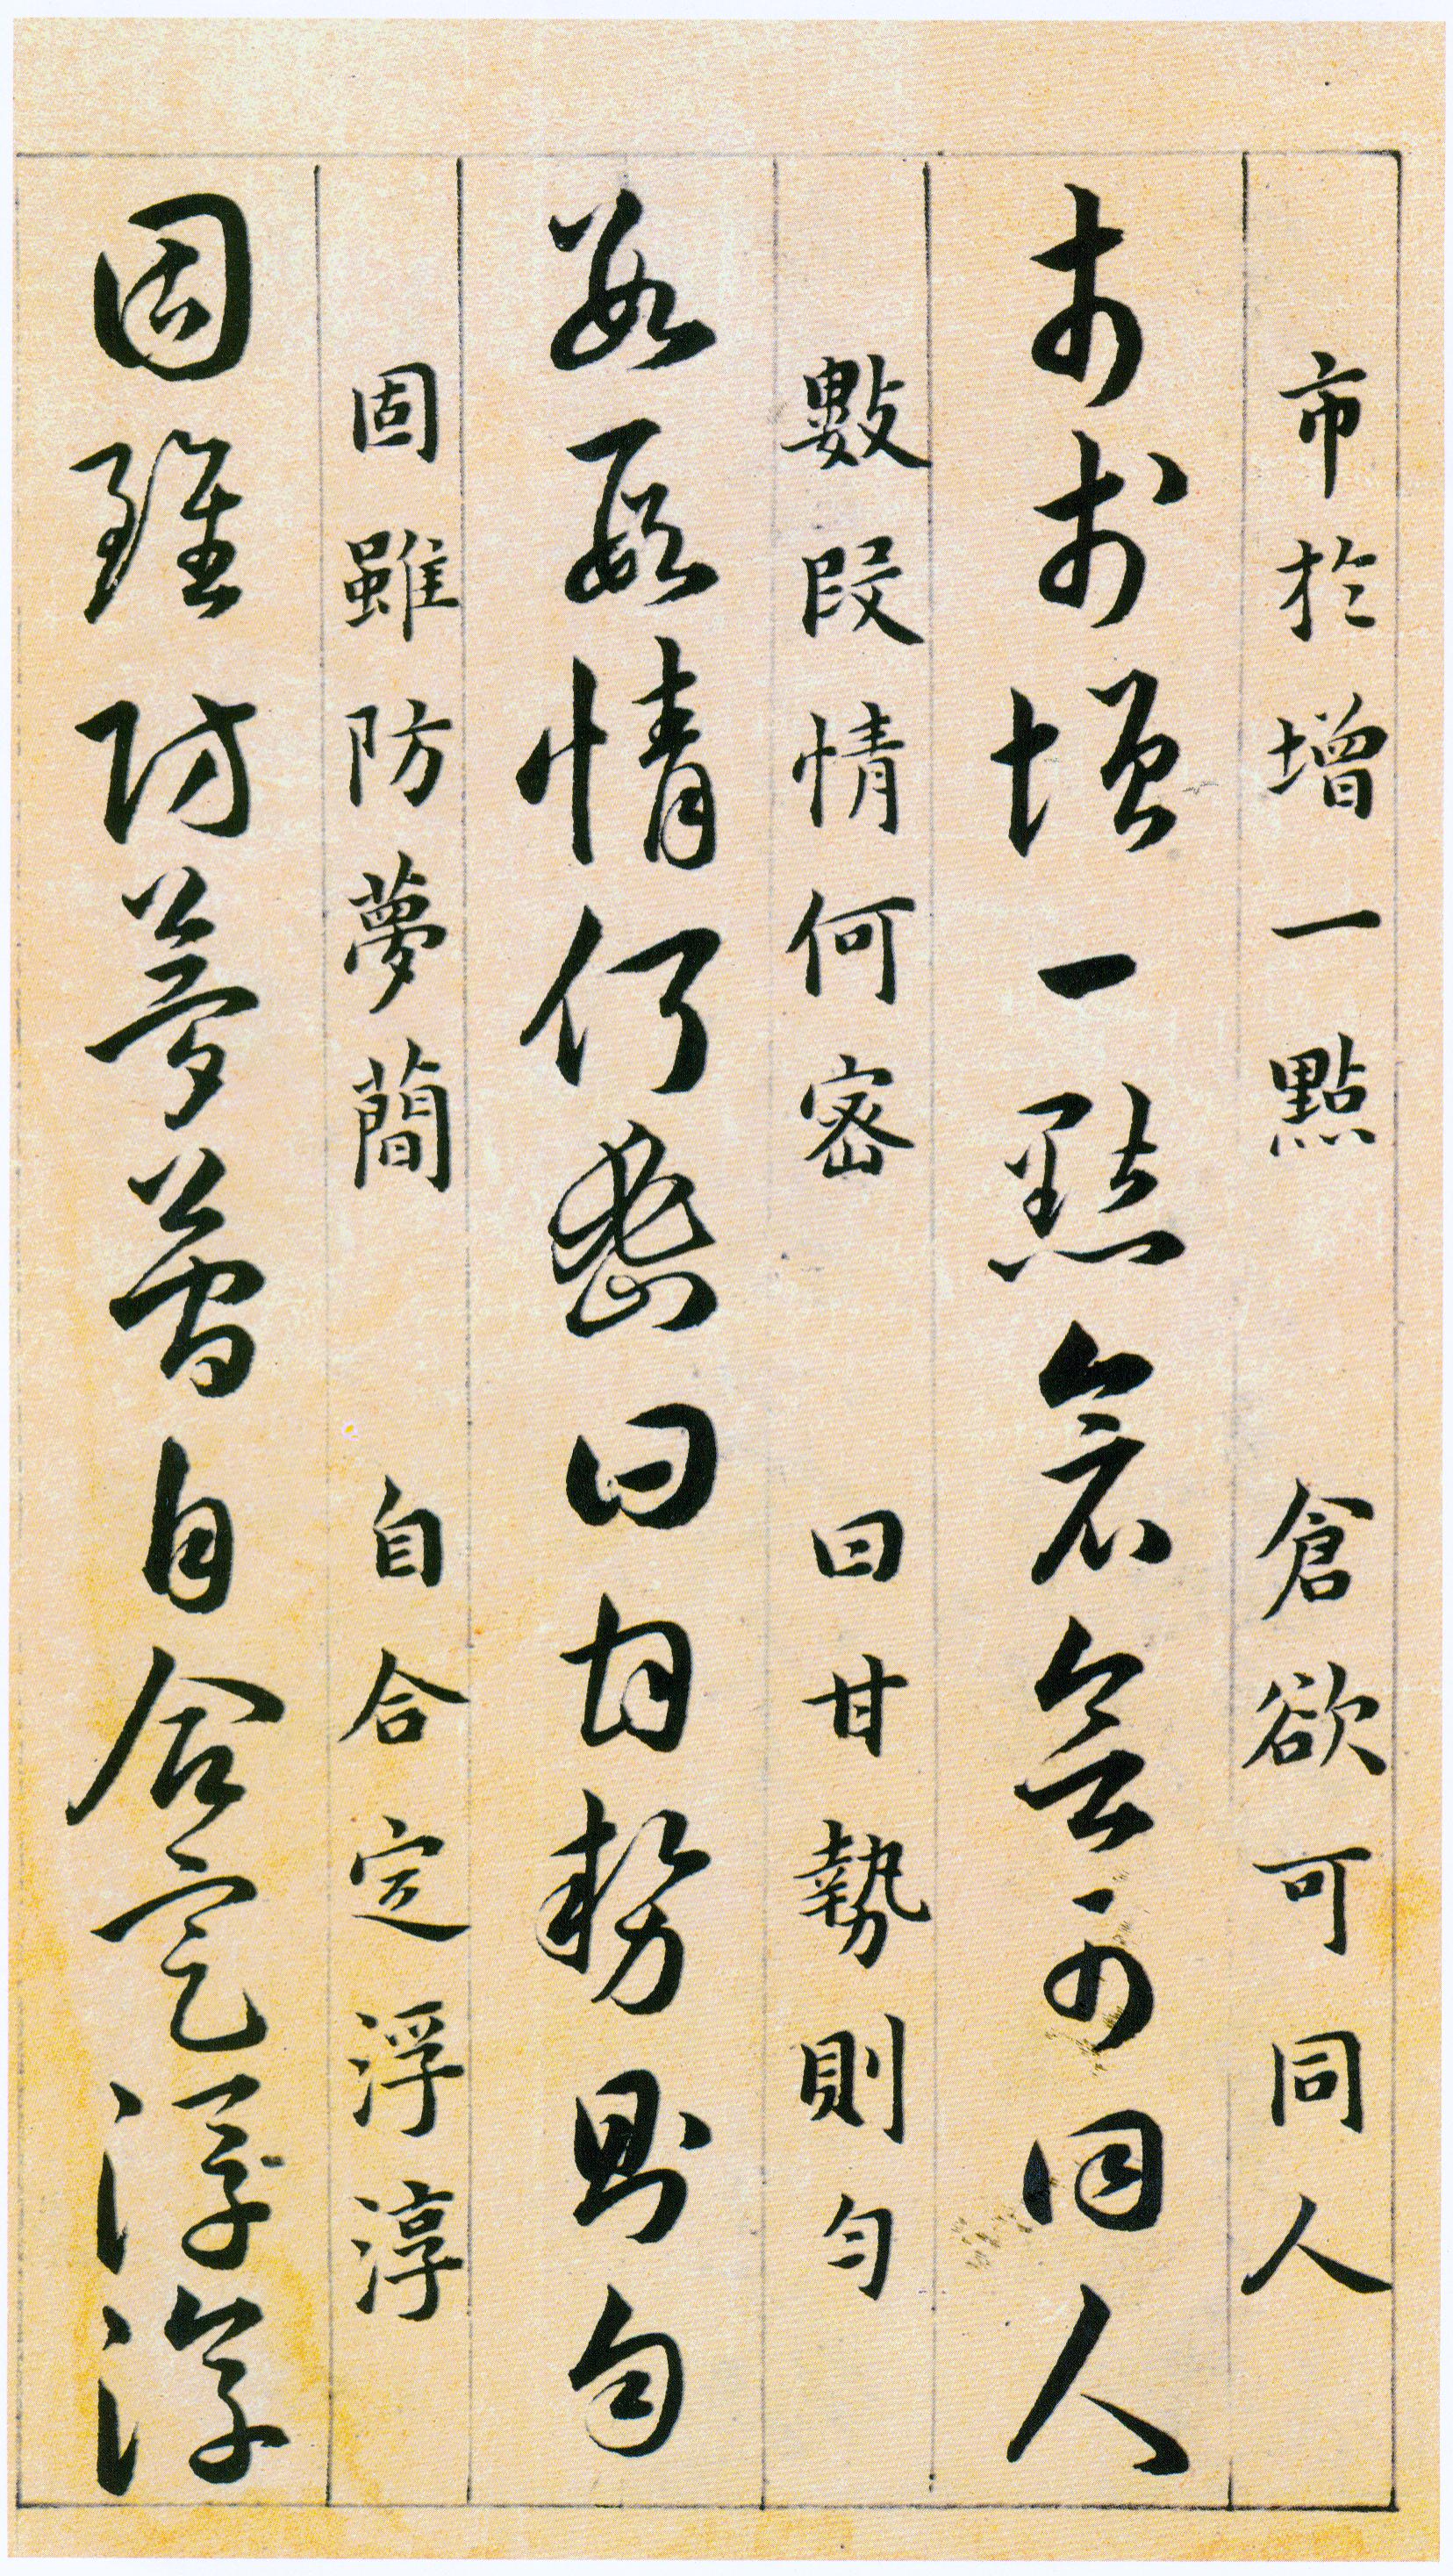 市於增一點 倉欲可同人
市於增一點倉欲可同人
數段情何密 曰甘勢則勻
數段情何密曰甘勢則勻
固雖防夢蕳 自合定浮淳
固雖防夢蕳自合定浮淳